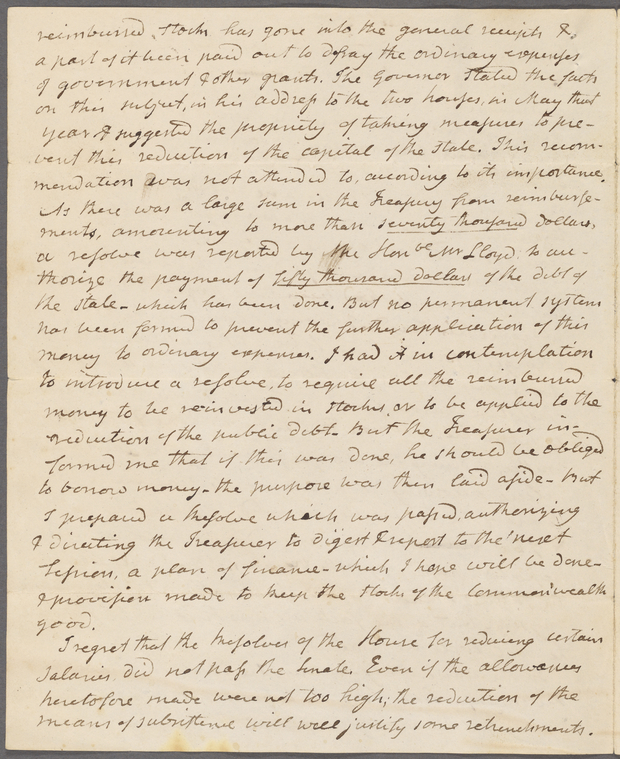 reimbursed stocks has gone into the general receipts &c
a part of it been paid out to defray the ordinary expenses
of government & other grants. The Governor stated the facts
on this subject, in his address to the two houses, in May that
year & suggested the propriety of taking measures to pre-
vent this reduction of the capital of the State. This recom-
mendation was not attended to, according to its importance.
As there was a large sum in the Treasury from reimburse-
ments, amounting to more than seventy thousand dollars,
a resolve was reported by the Honble Mr Lloyd to au-
thorize the payment of fifty thousand dollars of the debt of
the State - which has been done. But no permanent system
has been formed to prevent the further application of this
money to ordinary expenses. I had it in contemplation
to introduce a resolve, to require all the reimbursed
money to be reinvested in stocks, or to be applied to the
reduction of the public debt. But the Treasurer in-
formed me that if this was done, he should be obliged
to borrow money - the purpose was then laid aside - But
I prepared a Resolve which was passed, authorizing
& directing the Treasurer to digest & report to the next
Session, a plan of finance - which I hope will be done -
& provision made to keep the stocks of the Commonwealth
good.
I regret that the Resolves of the House for reducing certain
Salaries, did not pass the Senate. Even if the allowances
heretofore made were not too high, the reduction of the
means of subsistence will well justify some retrenchments.